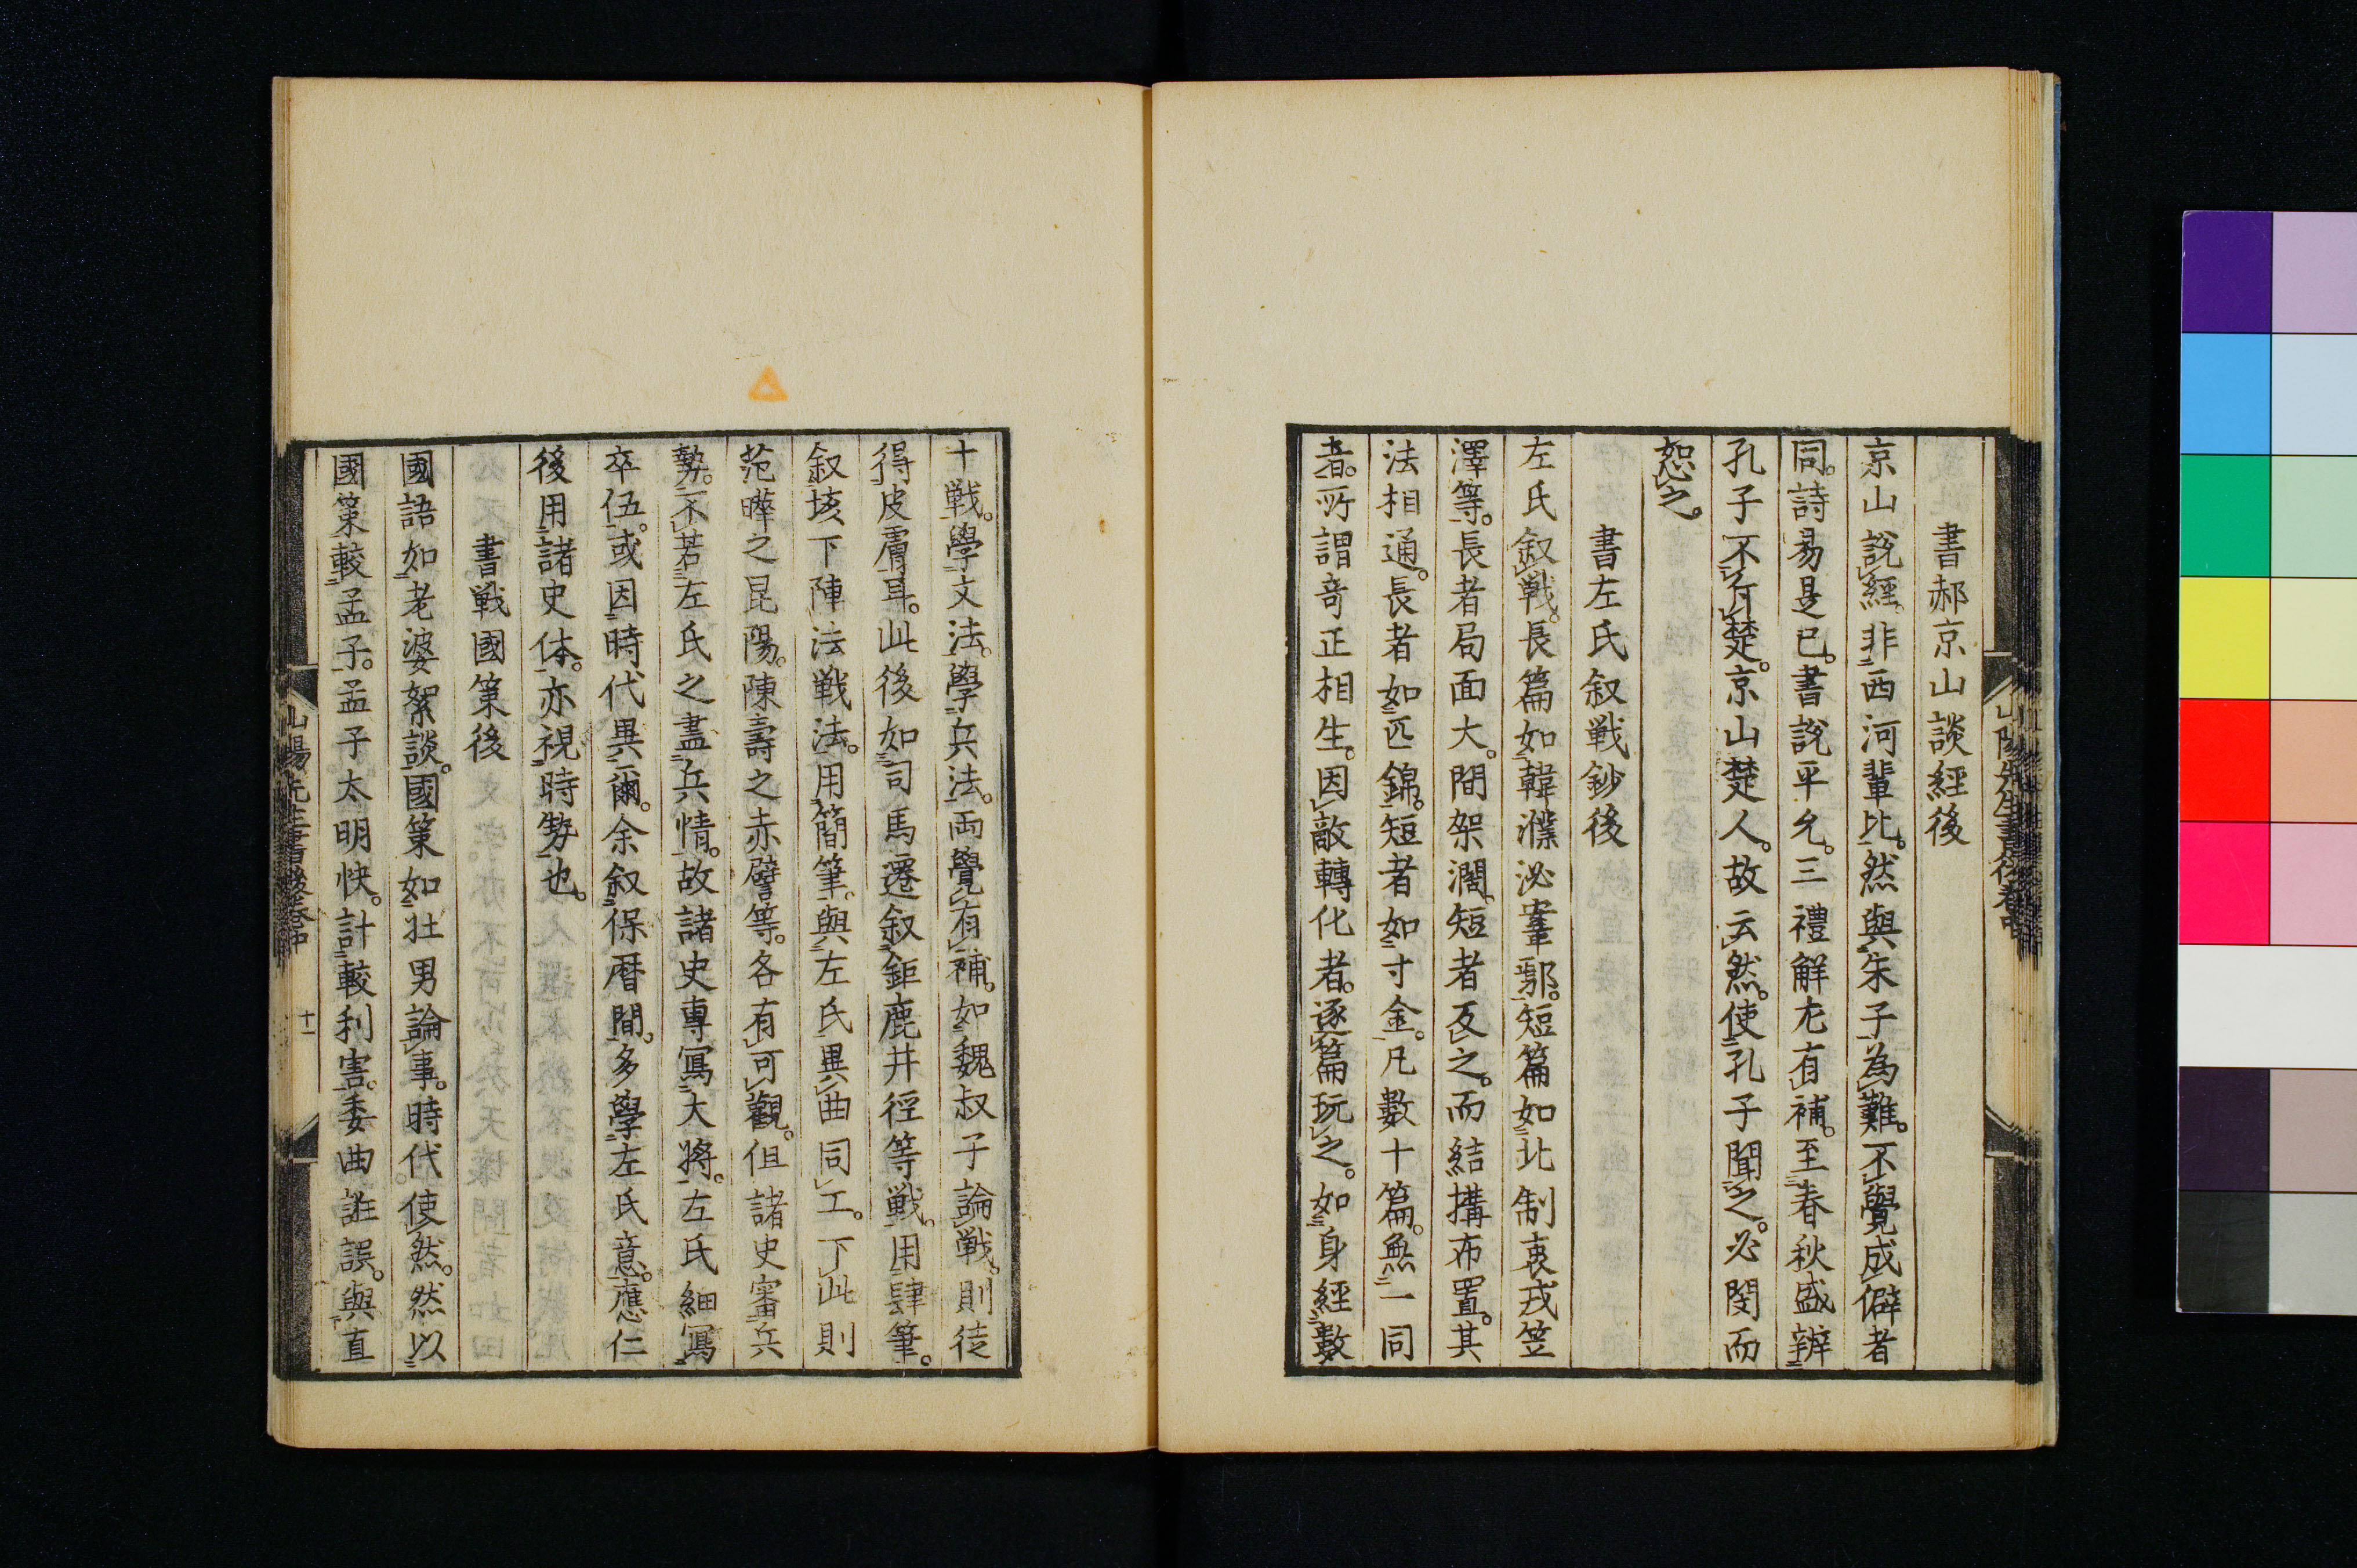 書郝京山談經後
京山說經。非西河輩比。然與朱子為難。不覺成僻者
同。詩易是已。書說平允。三禮解尤有補。至春秋盛辨
孔子不仕楚。京山楚人。故云然。使孔子聞之。必閔而
恕之。
書左氏叙戦鈔後
左氏叙戦。長篇如韓濮泌鞌鄢。短篇如北制衷戎笠
澤等。長者局面大。間架濶。短者反之。而結搆布置。其
法相通。長者如匹錦。短者如寸金。凡數十篇。無一同
者。所謂竒正相生。因敵轉化者。逐篇玩之。如身經數
十戦。學文法。學兵法。両覺有補。如魏叔子論戦。則徒
得皮膚耳。此後如司馬遷叙鉅鹿井徑等戦。用肆筆。
叙垓下陣法戦法。用簡筆。與左氏異曲同工。下此則
范曄之昆陽。陳壽之赤譬等。各有可觀。但諸史審兵
勢。不若左氏之盡兵情。故諸史專寫大將。左氏細寫
卒伍。或因時代異爾。余叙保暦間。多學左氏意。應仁
後用諸史体。亦視時勢也。
書戦國策後
國語如老婆絮談。國策如壮男論事。時代使然。然以
國策較孟子。孟子太明快。計較利害。委曲誑誤。與直
山陽先生書後卷中
十一